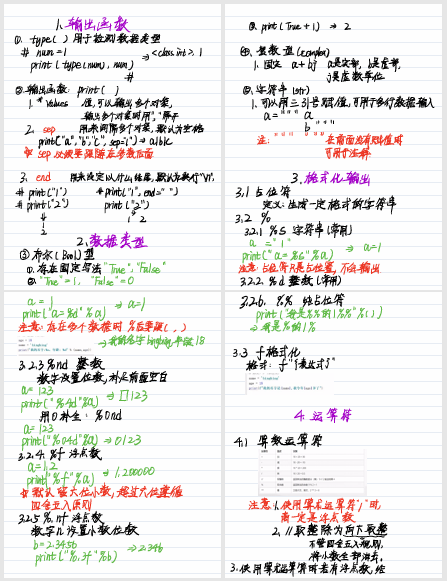 1. 输出函数
①. type( ) 用于检测数据类型
# num = 1
print (type(num), num)
→ <class int>, 1
#
②. 输出函数 print( )
1. * Values 值,可以输出多个对象,
输出多个对象时用","隔开
2. sep 用来间隔多个对象,默认为空格
print("a","b","c", sep="|") → a|b|c
3. end 用来设定以什么结尾,默认为换行"\n",
# print("1")
# print("2")
# print("1", end=" ")
print("2")
1
2
1 2
2. 数据类型
③ 布尔(Bool)型
①. 存在固定写法 "True", "False"
②. "True"=1, "False"=0
a = 1
print("a=%d"%a) → a=1
注意: 存在多个数据时 % 后要跟(,)
3.2.3 %nd 整数
数字设置位数,补上前面空白
a = 123
print("%4d"%a) → □123
用0补全: %0nd
a = 123
print("%04d"%a) → 0123
3.2.4. %f 浮点数
a = 1.2
print("%f"%a) → 1.200000
默认留六位小数,超过六位遵循
四舍五入原则
3.2.5 %.nf 浮点数
数字n设置小数位数
b = 2.3456
print("%.3f"%b) → 2.346
② print(True+1) → 2
④. 复数型(complex)
1. 固定 a + bj a是实部, b是虚部,
j是虚数单位
⑤. 字符串 (str)
1. 可以用三引号赋值,可用于多行数据输入
3. 格式化输出
3.1 占位符
定义:生成一定格式的字符串
3.2 %
3.2.1 %s 字符串(常用)
a = "1"
print("a=%s"%a) → a=1
注意: 占位符只是占位置,不会输出
3.2.2. %d 整数(常用)
3.2.6. %%
3.3 f格式化
格式: f"{表达式}"
4. 运算符
4.1 算数运算符
注意: 1. 使用算术运算符"/"时,
商一定是浮点数
2. // 取整除为向下取整
不管四舍五入规则,
3. 使用算术运算时若有浮点数,